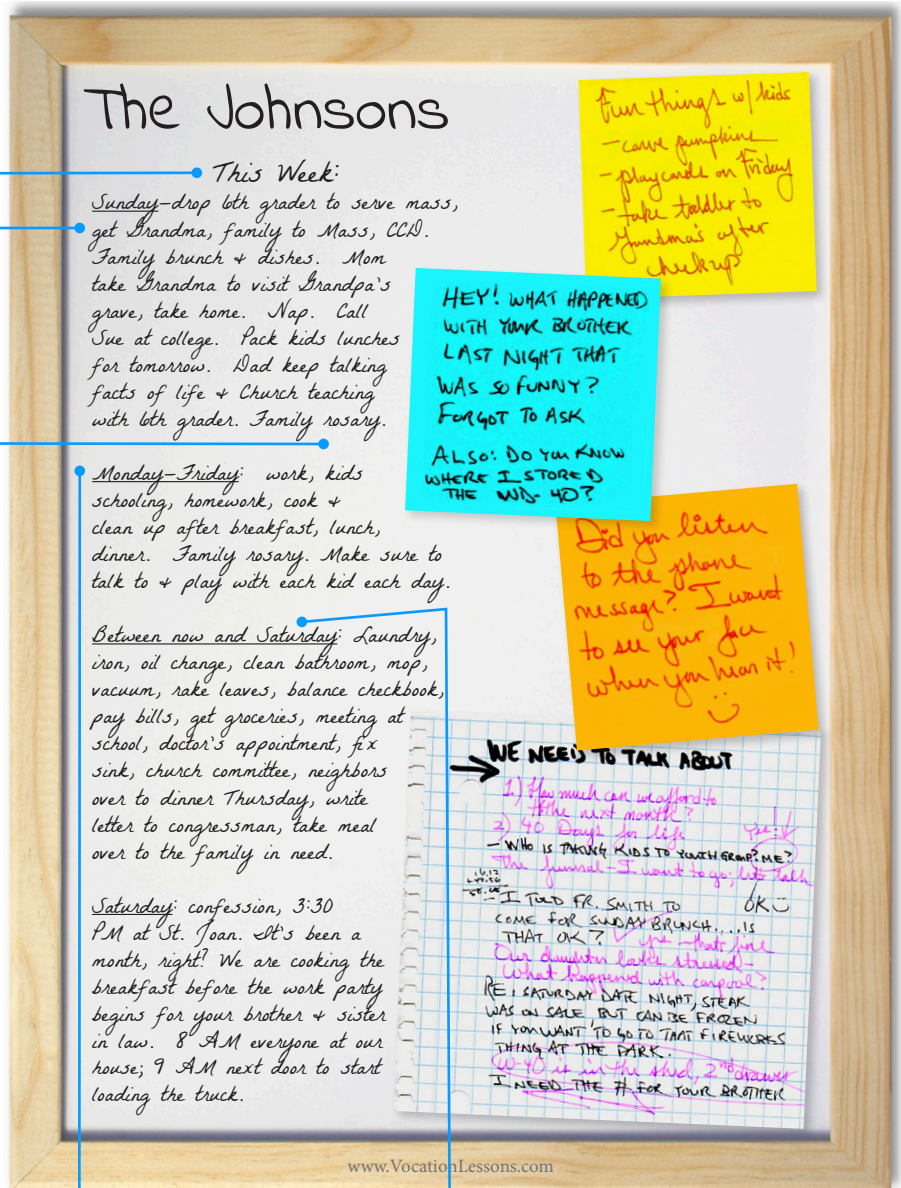 The Johnsons
This Week:
Sunday-drop 6th grader to serve mass,
get Grandma, family to Mass, CCD.
Family brunch & dishes. Mom
take Grandma to visit Grandpa's
grave, take home. Nap. Call
Sue at college. Pack kids lunches
for tomorrow. Dad keep talking
facts of life & Church teaching
with 6th grader. Family rosary.
Monday-Friday: work, kids
schooling, homework, cook &
clean up after breakfast, lunch,
dinner. Family rosary. Make sure to
talk to & play with each kid each day.
Between now and Saturday: Laundry,
iron, oil change, clean bathroom, mop,
vacuum, rake leaves, balance checkbook,
pay bills, get groceries, meeting at
school, doctor's appointment, fix
sink, church committee, neighbors
over to dinner Thursday, write
letter to congressman, take meal
over to the family in need.
Saturday: confession, 3:30
PM at St. Joan. It's been a
month, right? We are cooking the
breakfast before the work party
begins for your brother & sister
in law. 8 AM everyone at our
house; 9 AM next door to start
loading the truck.
Fun things w/ kids
- carve pumpkins
- play cards on Friday
- take toddler to
Grandma's after
checkup
HEY! WHAT HAPPENED
WITH YOUR BROTHER
LAST NIGHT THAT
WAS SO FUNNY?
FORGOT TO ASK
ALSO: DO YOU KNOW
WHERE I STORED
THE WD-40?
Did you listen
to the phone
message? I want
to see your face
when you hear it!
WE NEED TO TALK ABOUT
1.) How much can we afford to
tithe next month?
2) 40 Days for life
- WHO IS TAKING KIDS TO YOUTH GROUP? ME?
yes!
The funeral - I want to go, let's talk
OK
- I TOLD FR. SMITH TO
COME FOR SUNDAY BRUNCH....IS
THAT OK? yes - that's fine
Our daughter looks stressed -
What happened with carpool?
RE: SATURDAY DATE NIGHT, STEAK
WAS ON SALE BUT CAN BE FROZEN
IF YOU WANT TO GO TO THAT FIREWORKS
THING AT THE PARK.
W-40 is in the shed, 2nd drawer
I NEED THE # FOR YOUR BROTHER
www.VocationLessons.com